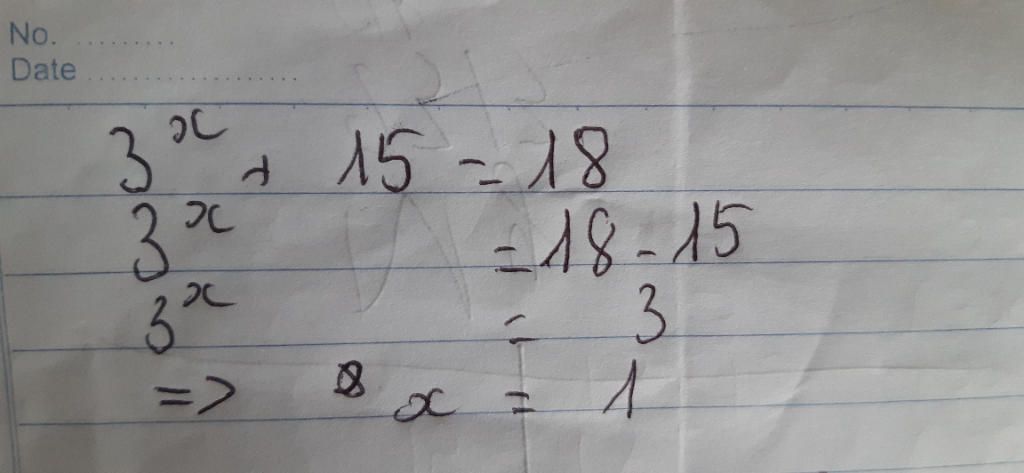 No. .........
Date ..................
3^x + 15 = 18
3^x = 18 - 15
3^x = 3
=> x = 1